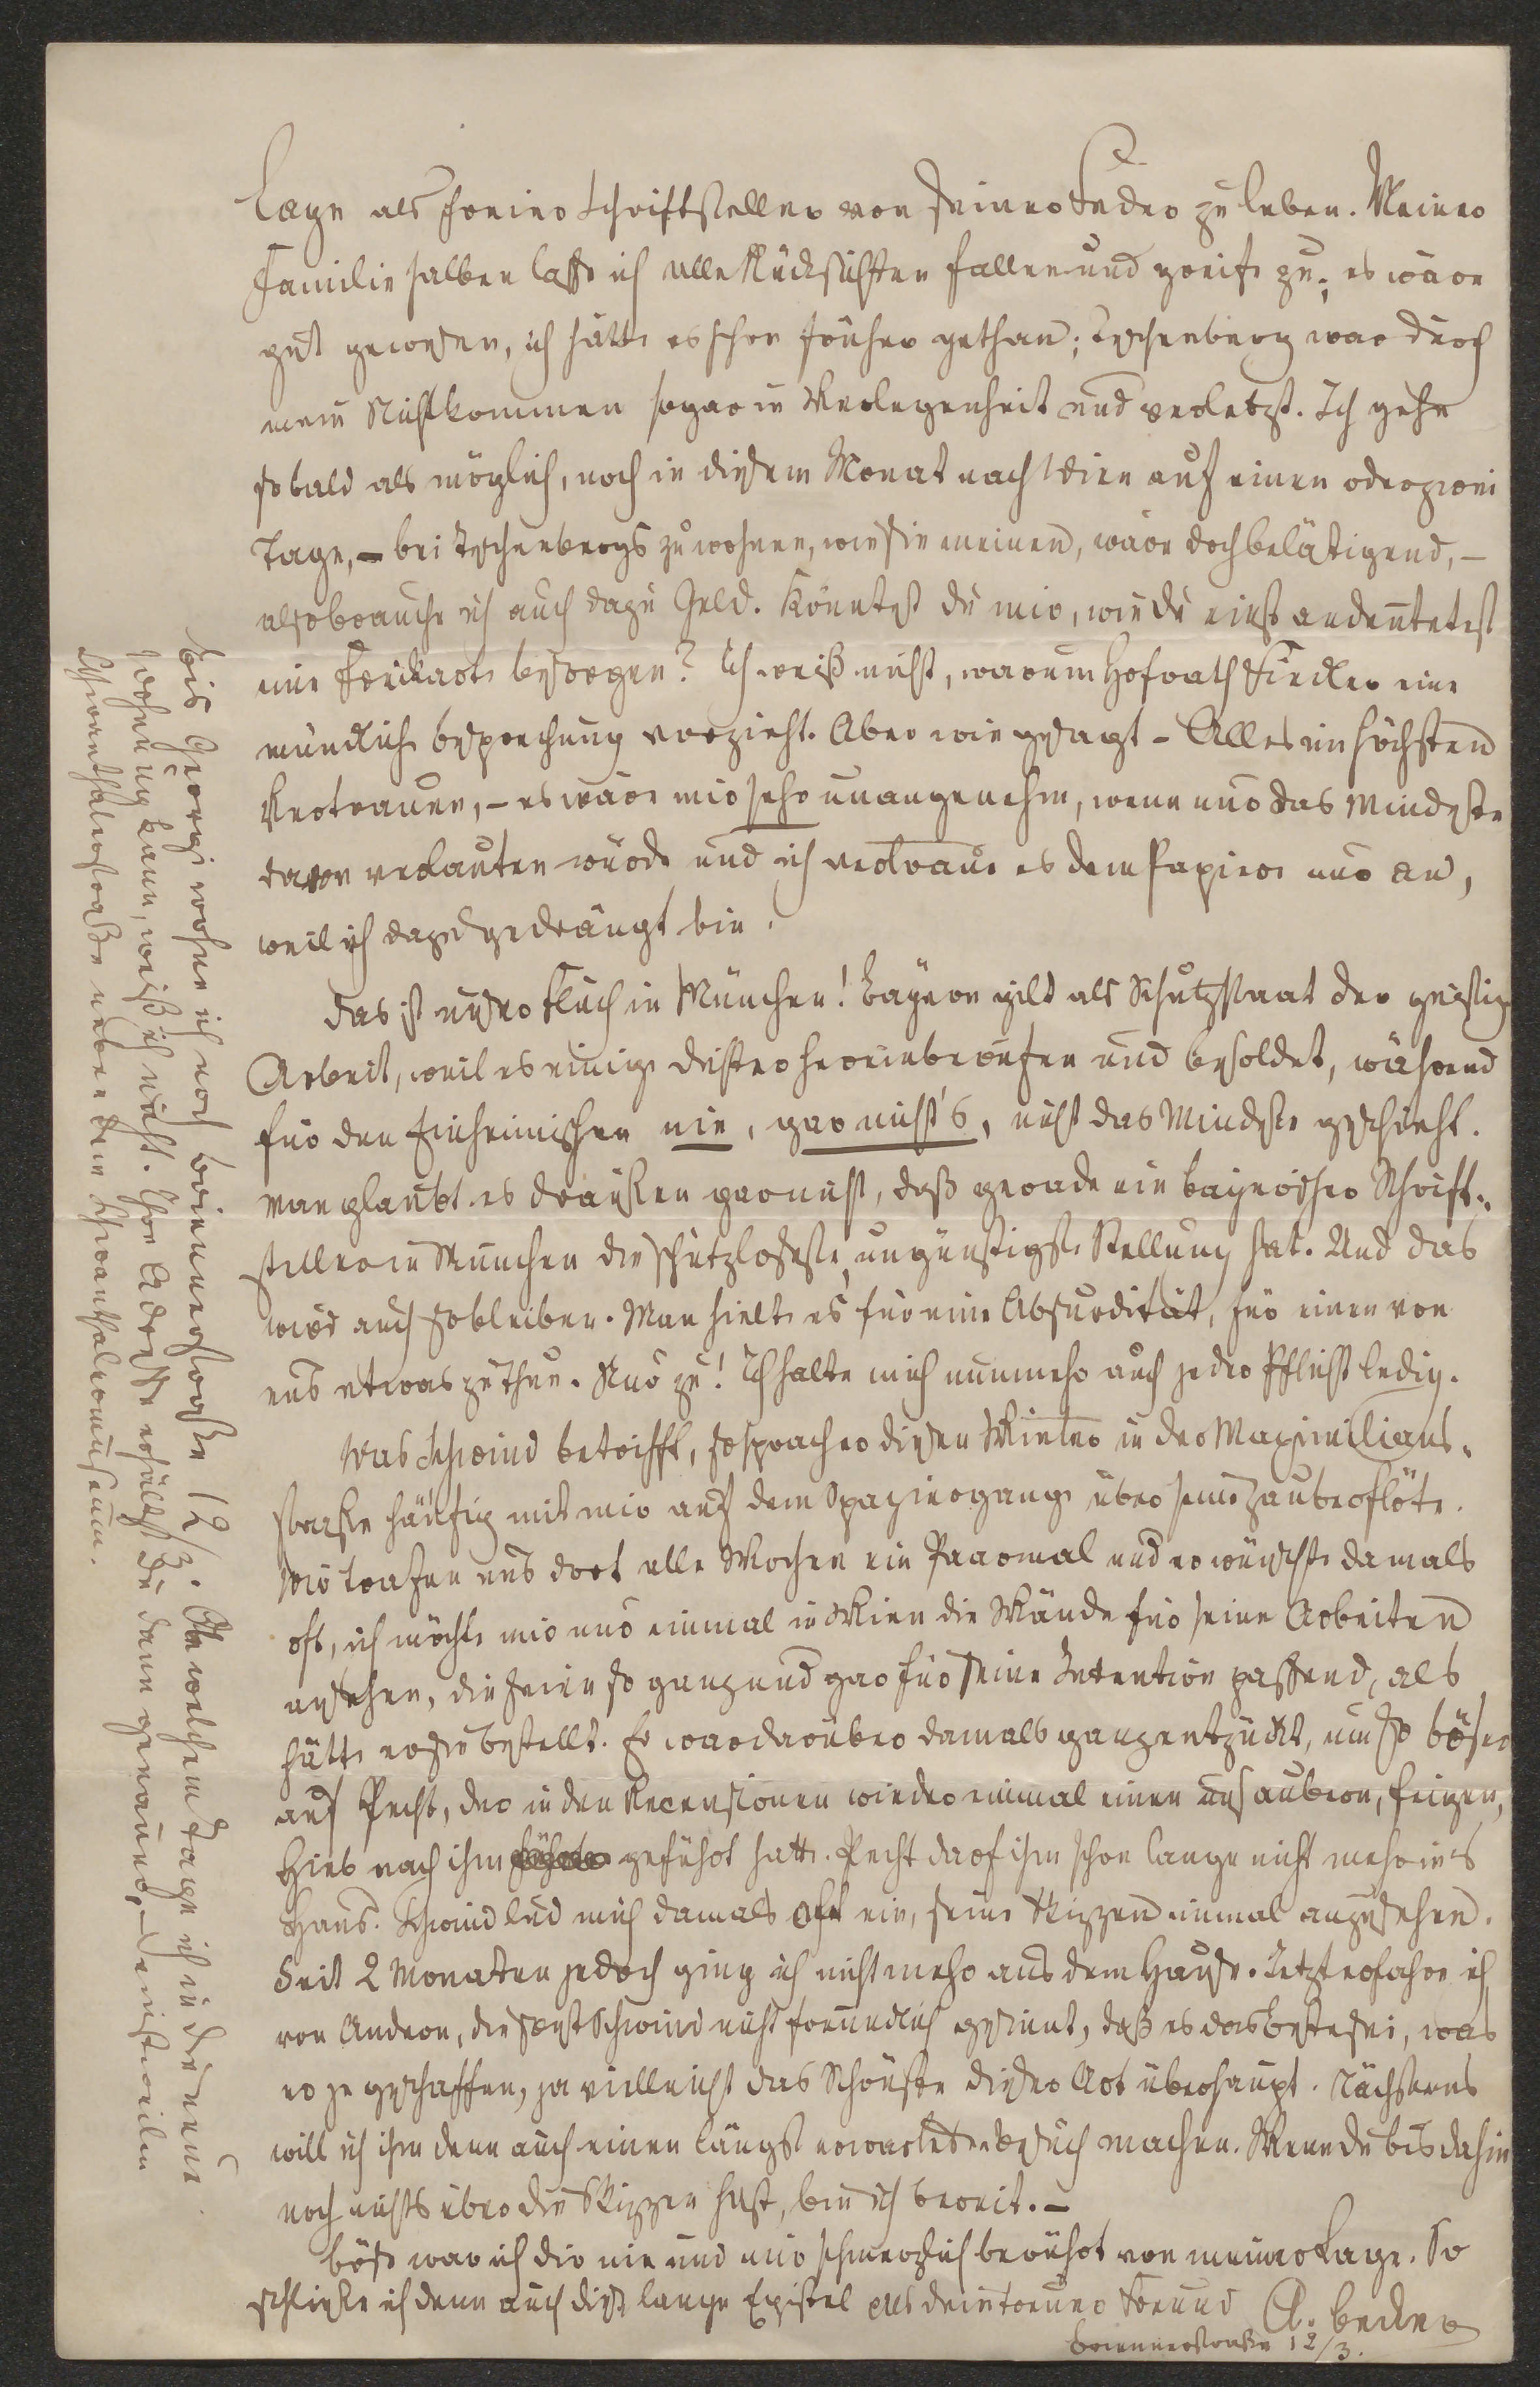 Lage als freier Schriftsteller von seiner Feder zu leben. Meiner
Familie halber lasse ich alle Rücksichten fallen und greife zu; es wäre
gut gewesen, ich hätte es schon früher gethan; Teschenberg war durch
mein Nichtkommen sogar in Verlegenheit und verletzt. Ich gehe
so bald als möglich, noch in diesem Monat nach Wien auf einen oder zwei
Tage, – bei Teschenbergs zu wohnen, wie sie meinen, wäre doch belästigend, –
also brauche ich auch dazu Geld. Könntest du mir, wie du einst andeutetest
eine Freikarte besorgen? Ich weiß nicht, warum Hofrath Fickler eine
mündliche Besprechung vorzieht. Aber wie gesagt – Alles im höchsten
Vertrauen, – es wäre mir sehr unangenehm, wenn nur das Mindeste
davon verlauten würde und ich vertraue es dem Papier nur an,
weil ich dazu gedrängt bin.
Das ist unser Fluch in München! Bayern gilt als Schutzstaat der geistigen
Arbeit, weil es einige Dichter hereinberufen und besoldet, während
für den Einheimischen nie, gar nichts, nicht das Mindeste geschieht.
Man glaubt es draußen gar nicht, daß gerade ein bayrischer Schrift-
steller in München die schutzloseste, ungünstigste Stellung hat. Und das
wird auch so bleiben. Man hielte es für eine Absurdität, für einen von
uns etwas zu thun. Nur zu! Ich halte mich nunmehr auch jeder Pflicht ledig.
Was Schwind betrifft, so sprach er diesen Winter in der Maximilians-
straße häufig mit mir auf dem Spaziergang über seine Zauberflöte.
Wir trafen uns dort alle Wochen ein Paarmal und er wünschte damals
oft, ich möchte mir nur einmal in Wien die Wände für seine Arbeiten
ansehen, die seien so ganz und gar für seine Intention passend, als
hätte er sie bestellt. Er war darüber damals ganz entzückt, um so böser
auf Pecht, der in den Recensionen wieder einmal einen unsaubern, feigen,
Hieb nach ihm geführt hatte. Pecht darf ihm schon lange nicht mehr ins
Haus. Schwind lud mich damals oft ein, seine Skizzen einmal anzusehen.
Seit 2 Monaten jedoch ging ich nicht mehr aus dem Hause. Jetzt erfahre ich
von Andern, die sonst Schwind nicht freundlich gesinnt, daß es das Beste sei, was
er je geschaffen, ja vielleicht das Schönste dieser Art überhaupt. Nächstens
will ich ihm denn auch einen längst erwarteten Besuch machen. Wenn du bis dahin
noch nichts über die Skizzen hast, bin ich bereit. –
Böse war ich dir nie und nur schmerzlich berührt von meiner Lage. So
schließe ich denn auch diese lange Epistel als dein treuer Freund A. Becker
Briennerstraße 12/3.
Bis Georgi wohne ich noch Briennerstraße 12/3. An welchem Tage ich in die neue
Wohnung kann, weiß ich nicht. Ihre Adresse erhältst du dann genauer, – einstweilen
Schwanthalerstraße neben dem Schwanthalermuseum.